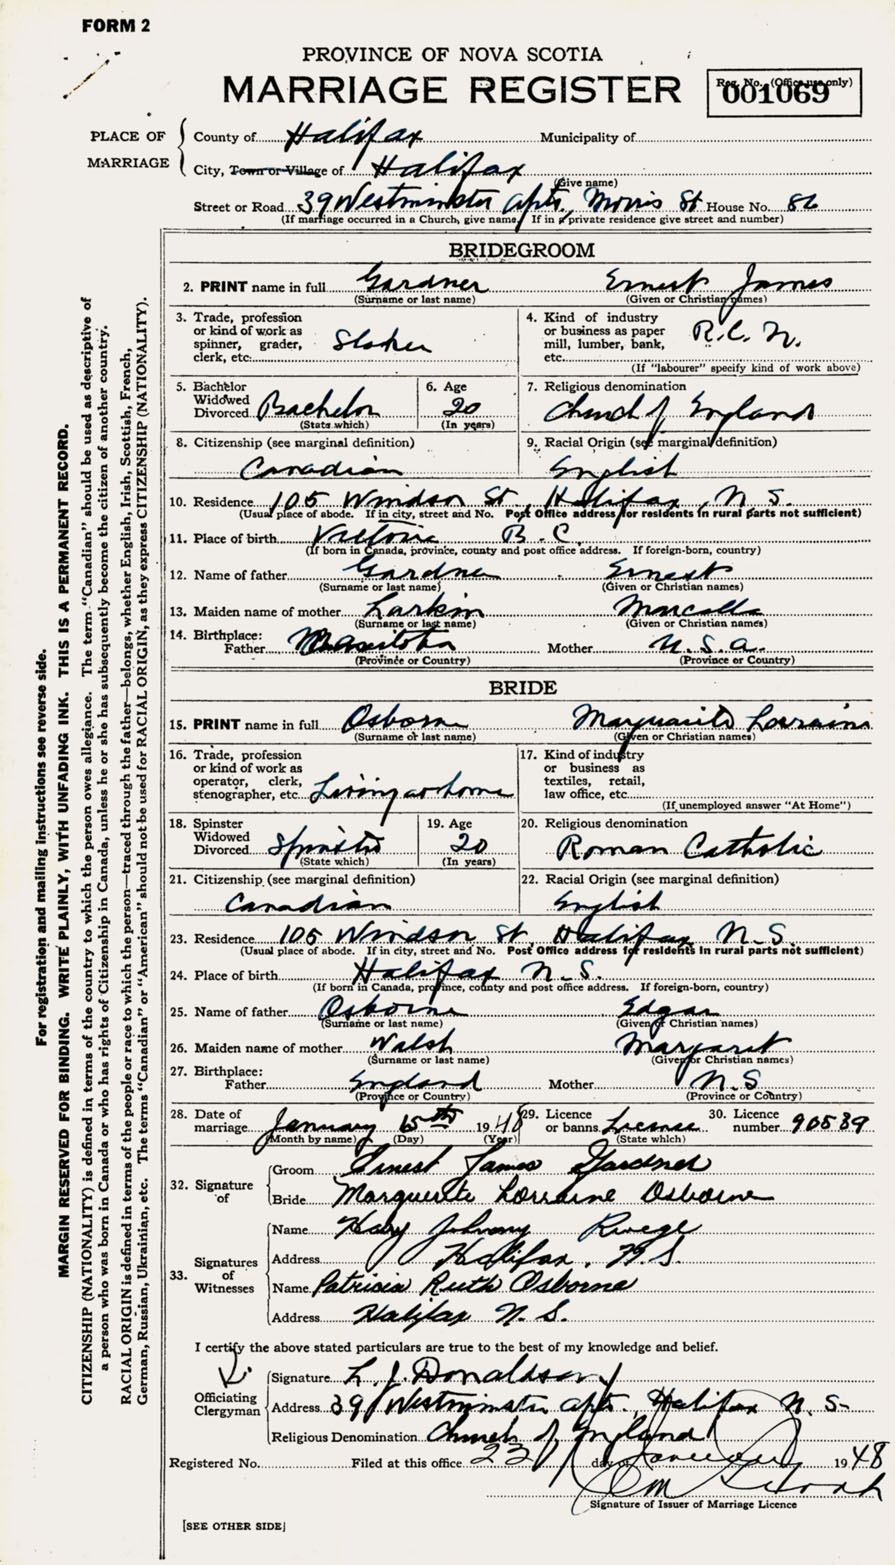 FORM 2
PROVINCE OF NOVA SCOTIA
MARRIAGE REGISTER
Reg. No. (Office use only)
001069
PLACE OF MARRIAGE
County of Halifax Municipality of
City, Town or Village of Halifax
(Give name)
Street or Road 39 Westminster Apts, Morris St House No. 86
(If marriage occurred in a Church, give name. If in a private residence give street and number)
BRIDEGROOM
2. PRINT name in full Gardner Ernest James
(Surname or last name) (Given or Christian names)
3. Trade, profession or kind of work as spinner, grader, clerk, etc. Stoker
4. Kind of industry or business as paper mill, lumber, bank, etc. R.C.N.
(If "labourer" specify kind of work above)
5. Bachelor Widowed Divorced Bachelor
(State which)
6. Age 20
(In years)
7. Religious denomination
Church of England
8. Citizenship (see marginal definition)
Canadian
9. Racial Origin (see marginal definition)
English
10. Residence 105 Windsor St Halifax, N.S.
(Usual place of abode. If in city, street and No. Post Office address for residents in rural parts not sufficient)
11. Place of birth Victoria B.C.
(If born in Canada, province, county and post office address. If foreign-born, country)
12. Name of father Gardner Ernest
(Surname or last name) (Given or Christian names)
13. Maiden name of mother Larkin
(Surname or last name) (Given or Christian names)
14. Birthplace:
Father Manitoba Mother U.S.A.
(Province or Country) (Province or Country)
BRIDE
15. PRINT name in full Osborne Marguerite Lorraine
(Surname or last name) (Given or Christian names)
16. Trade, profession or kind of work as operator, clerk, stenographer, etc. Living at home
17. Kind of industry or business as textiles, retail, law office, etc.
(If unemployed answer "At Home")
18. Spinster Widowed Divorced Spinster
(State which)
19. Age 20
(In years)
20. Religious denomination
Roman Catholic
21. Citizenship (see marginal definition)
Canadian
22. Racial Origin (see marginal definition)
English
23. Residence 105 Windsor St, Halifax N.S.
(Usual place of abode. If in city, street and No. Post Office address for residents in rural parts not sufficient)
24. Place of birth Halifax N.S.
(If born in Canada, province, county and post office address. If foreign-born, country)
25. Name of father Osborne Edgar
(Surname or last name) (Given or Christian names)
26. Maiden name of mother Walsh Margaret
(Surname or last name) (Given or Christian names)
27. Birthplace:
Father England Mother N.S
(Province or Country) (Province or Country)
28. Date of marriage January 15th 1948
(Month by name) (Day) (Year)
29. Licence or banns License
(State which)
30. Licence number 90539
32. Signature of
Groom Ernest James Gardner
Bride Marguerite Lorraine Osborne
33. Signatures of Witnesses
Name Johnny
Address Halifax, N.S.
Name Patricia Ruth Osborne
Address Halifax N.S.
I certify the above stated particulars are true to the best of my knowledge and belief.
Officiating Clergyman
Signature L. J. Donaldson
Address 39 Westminster Apts. Halifax N.S.
Religious Denomination Church of England
Registered No. Filed at this office 23 day of January 1948
Signature of Issuer of Marriage Licence
[SEE OTHER SIDE]
For registration and mailing instructions see reverse side.
MARGIN RESERVED FOR BINDING. WRITE PLAINLY, WITH UNFADING INK. THIS IS A PERMANENT RECORD.
CITIZENSHIP (NATIONALITY) is defined in terms of the country to which the person owes allegiance. The term "Canadian" should be used as descriptive of
a person who was born in Canada or who has rights of Citizenship in Canada, unless he or she has subsequently become the citizen of another country.
RACIAL ORIGIN is defined in terms of the people or race to which the person—traced through the father—belongs, whether English, Irish, Scottish, French,
German, Russian, Ukrainian, etc. The terms "Canadian" or "American" should not be used for RACIAL ORIGIN, as they express CITIZENSHIP (NATIONALITY).